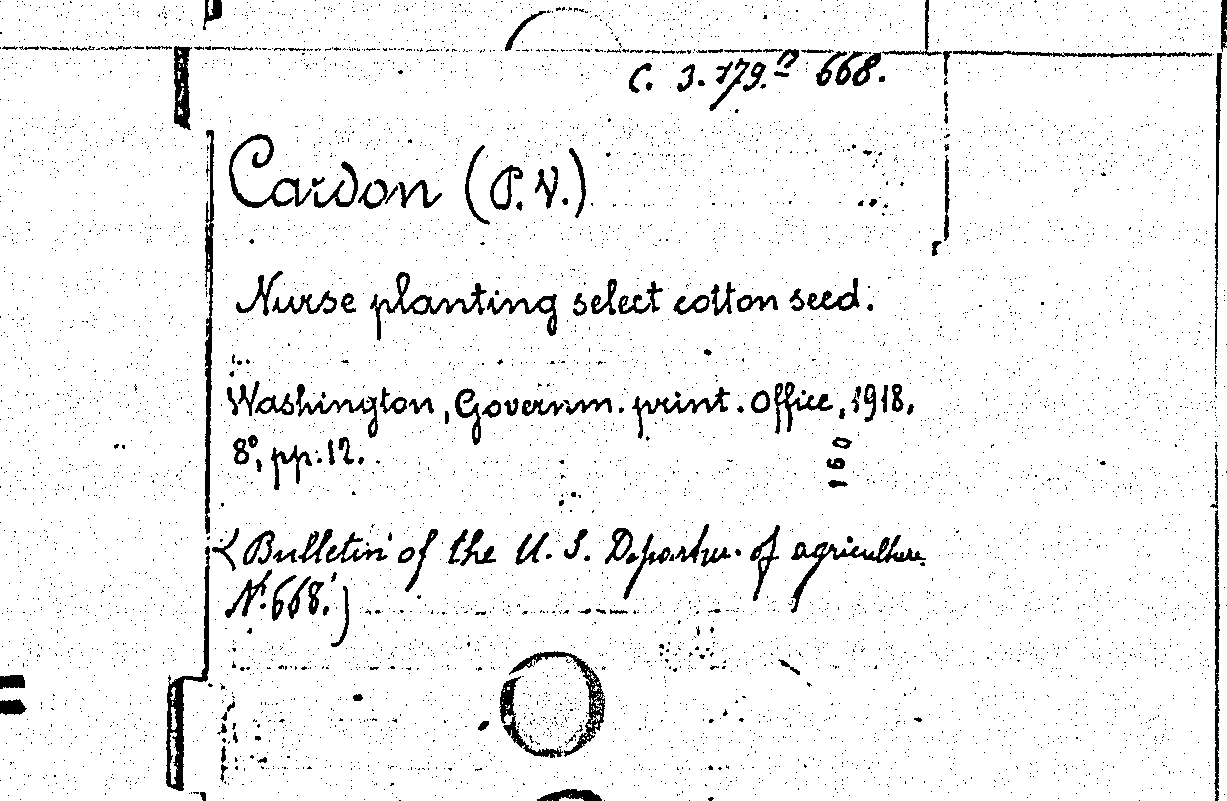 C. 3.179.n 668.
Cardon (P. V.)
Nurse planting select cotton seed.
Washington, Governm. print. Office, 1918.
8°, pp. 12.
160
(Bulletin of the U. S. Departm. of agriculture
N. 668.)